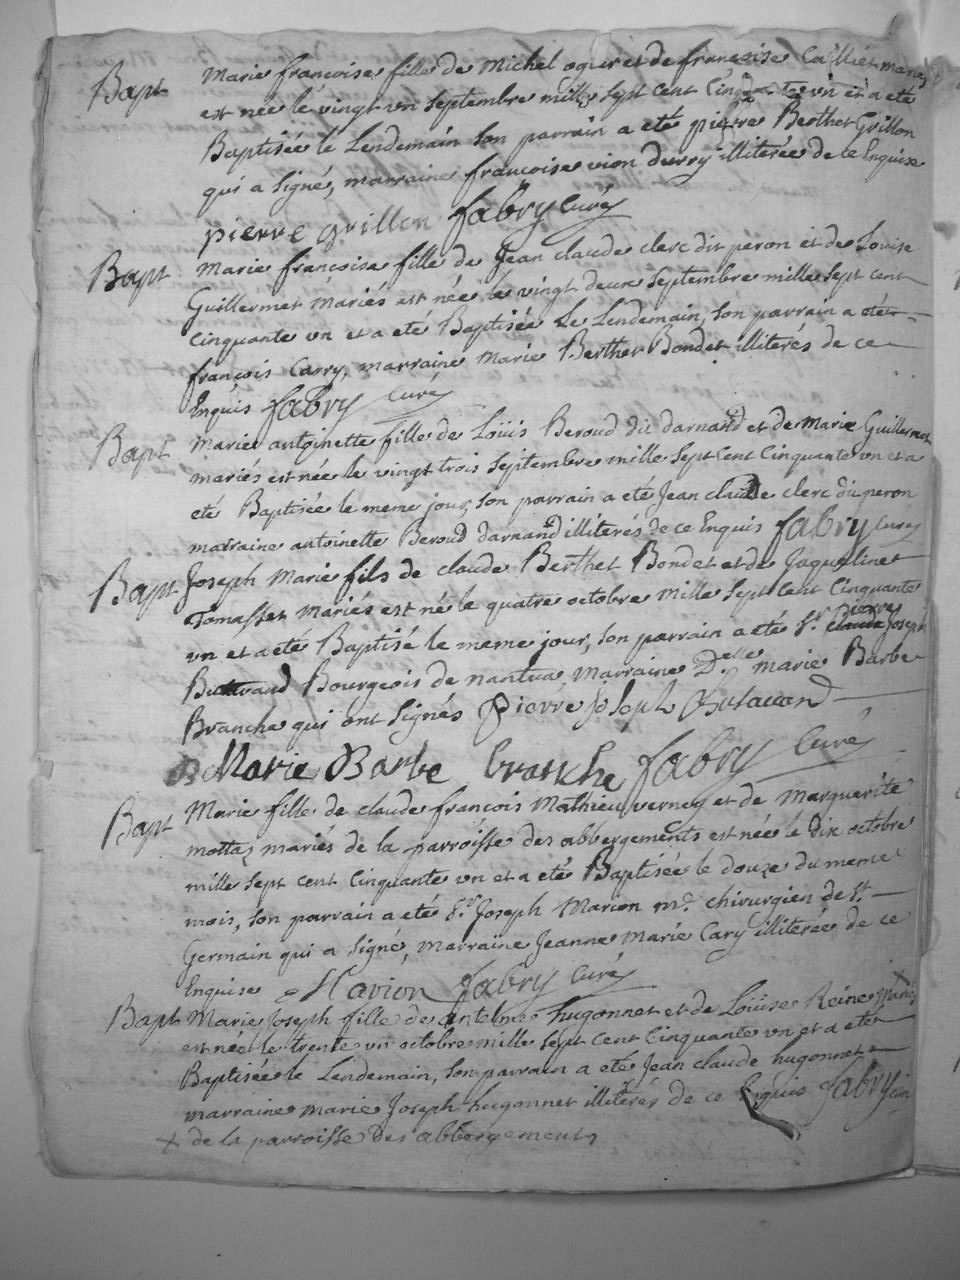 Bapt Marie françoise fille de Michel ogier et de françoise Cailliet mariés
est née le vingt un septembre mille sept cent Cinquante un et a eté
Baptisée le Lendemain son parrain a eté pierre Berthet Grillon
qui a signé, marraine françoise vion durry illiterée de ce Enquise
pierre grillon fabry Curé
Bapt Marie françoise fille de Jean claude clerc dit péron et de Louise
Guillermet Mariés est née le vingt deux septembre mille sept cent
cinquante un et a eté Baptisée Le Lendemain, son parrain a eté
françois Carry, marraine Marie Berthet Bondet illiterés de ce
Enquis fabry Curé
Bapt Marie antoinette fille de Loüis Beroud dit darnand et de Marie Guillermet
mariés est née le vingt trois septembre mille sept cent Cinquante un et a
eté Baptisée le meme jour, son parrain a eté Jean claude clerc dit peron
marraine antoinette Beroud darnand illiterés de ce Enquis fabry Curé
Bapt Joseph Marie fils de claude Berthet Bondet et de Jaqueline
Tomasset Mariés est né le quatre octobre mille sept cent Cinquante
un et a eté Baptisé le meme jour, son parrain a eté Sr. claude pierre Joseph
Butavand Bourgeois de nantua, marraine Delle marie Barbe
Branche qui ont signés Pierre joseph Butavand
Marie Barbe branche fabry Curé
Bapt Marie fille de claude françois Mathieu verney et de Marguerite
mottaz mariés de la parroisse des abbergements est née le dix octobre
mille sept cent cinquante un et a eté Baptisée le douze du meme
mois, son parrain a eté Sr. Joseph Marion me. chirurgien de st.
Germain qui a signé, marraine Jeanne Marie Cary illiterée de ce
Enquise Marion fabry Curé
Bapt Marie Joseph fille de antelme hugonnet et de Loüise Reine mariés x
est née le trente un octobre mille sept cent Cinquante un et a eté
Baptisée le Lendemain, son parrain a eté Jean claude hugonnet
marraine marie Joseph hugonnet illiterés de ce Enquis fabry
x de la parroisse des abbergements